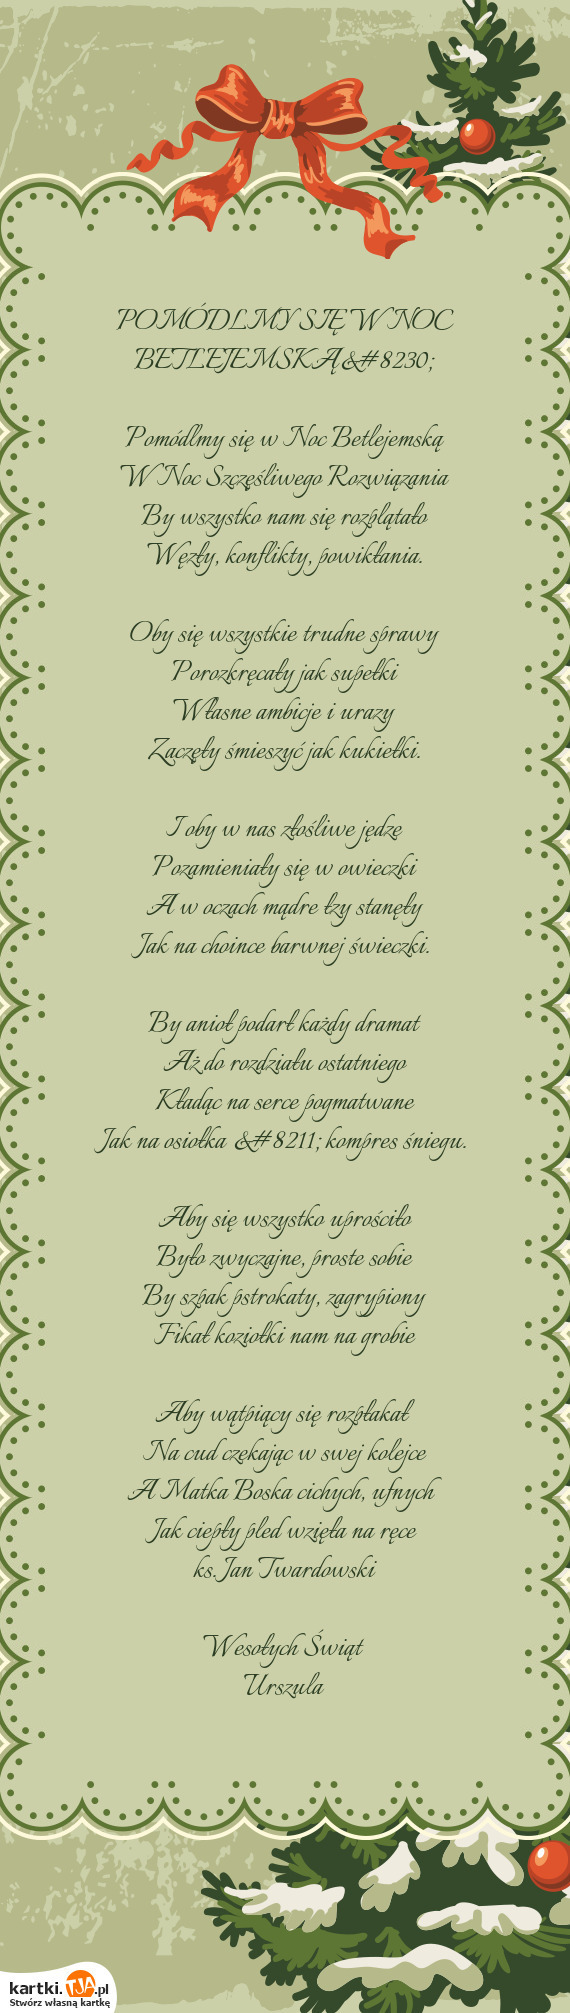 POMÓDLMY SIĘ W NOC
BETLEJEMSKĄ&#8230;
Pomódlmy się w Noc Betlejemską
W Noc Szczęśliwego Rozwiązania
By wszystko nam się rozplątało
Węzły, konflikty, powikłania.
Oby się wszystkie trudne sprawy
Porozkręcały jak supełki
Własne ambicje i urazy
Zaczęły śmieszyć jak kukiełki.
I oby w nas złośliwe jędze
Pozamieniały się w owieczki
A w oczach mądre łzy stanęły
Jak na choince barwnej świeczki.
By anioł podarł każdy dramat
Aż do rozdziału ostatniego
Kładąc na serce pogmatwane
Jak na osiołka &#8211; kompres śniegu.
Aby się wszystko uprościło
Było zwyczajne, proste sobie
By szpak pstrokaty, zagrypiony
Fikał koziołki nam na grobie
Aby wątpiący się rozpłakał
Na cud czekając w swej kolejce
A Matka Boska cichych, ufnych
Jak ciepły pled wzięła na ręce
ks. Jan Twardowski
Wesołych Świąt
Urszula
kartki.TJA.pl
Stwórz własną kartkę